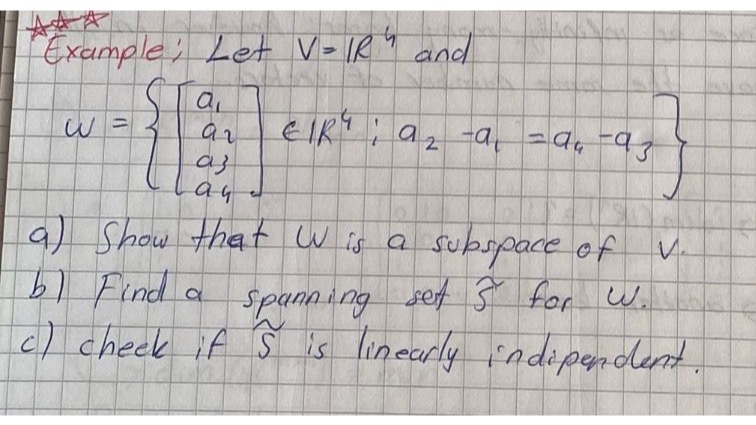 Example; Let V=IR⁴ and
W = { [ a₁ a₂ a₃ a₄ ] ∈ IR⁴ ; a₂ -a₁ = a₄ -a₃ }
a) Show that W is a subspace of V.
b) Find a spanning set S̃ for W.
c) check if S̃ is linearly independent.